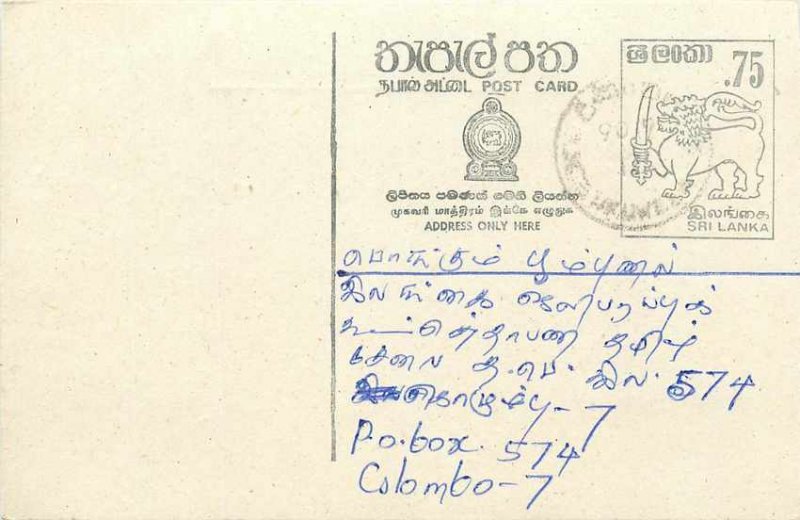 තැපැල් පත
தபால் அட்டை POST CARD
ලිපිනය පමණක් මෙහි ලියන්න
முகவரி மாத்திரம் இங்கே எழுதுக
ADDRESS ONLY HERE
ශ්‍රී ලංකා
.75
இலங்கை
SRI LANKA
பொங்கும் பூம்புனல்
இலங்கை ஒலிபரப்புக்
கூட்டுத்தாபன தமிழ்
சேவை த.பெ. இல. 574
கொழும்பு-7
P.o.box. 574
Colombo-7